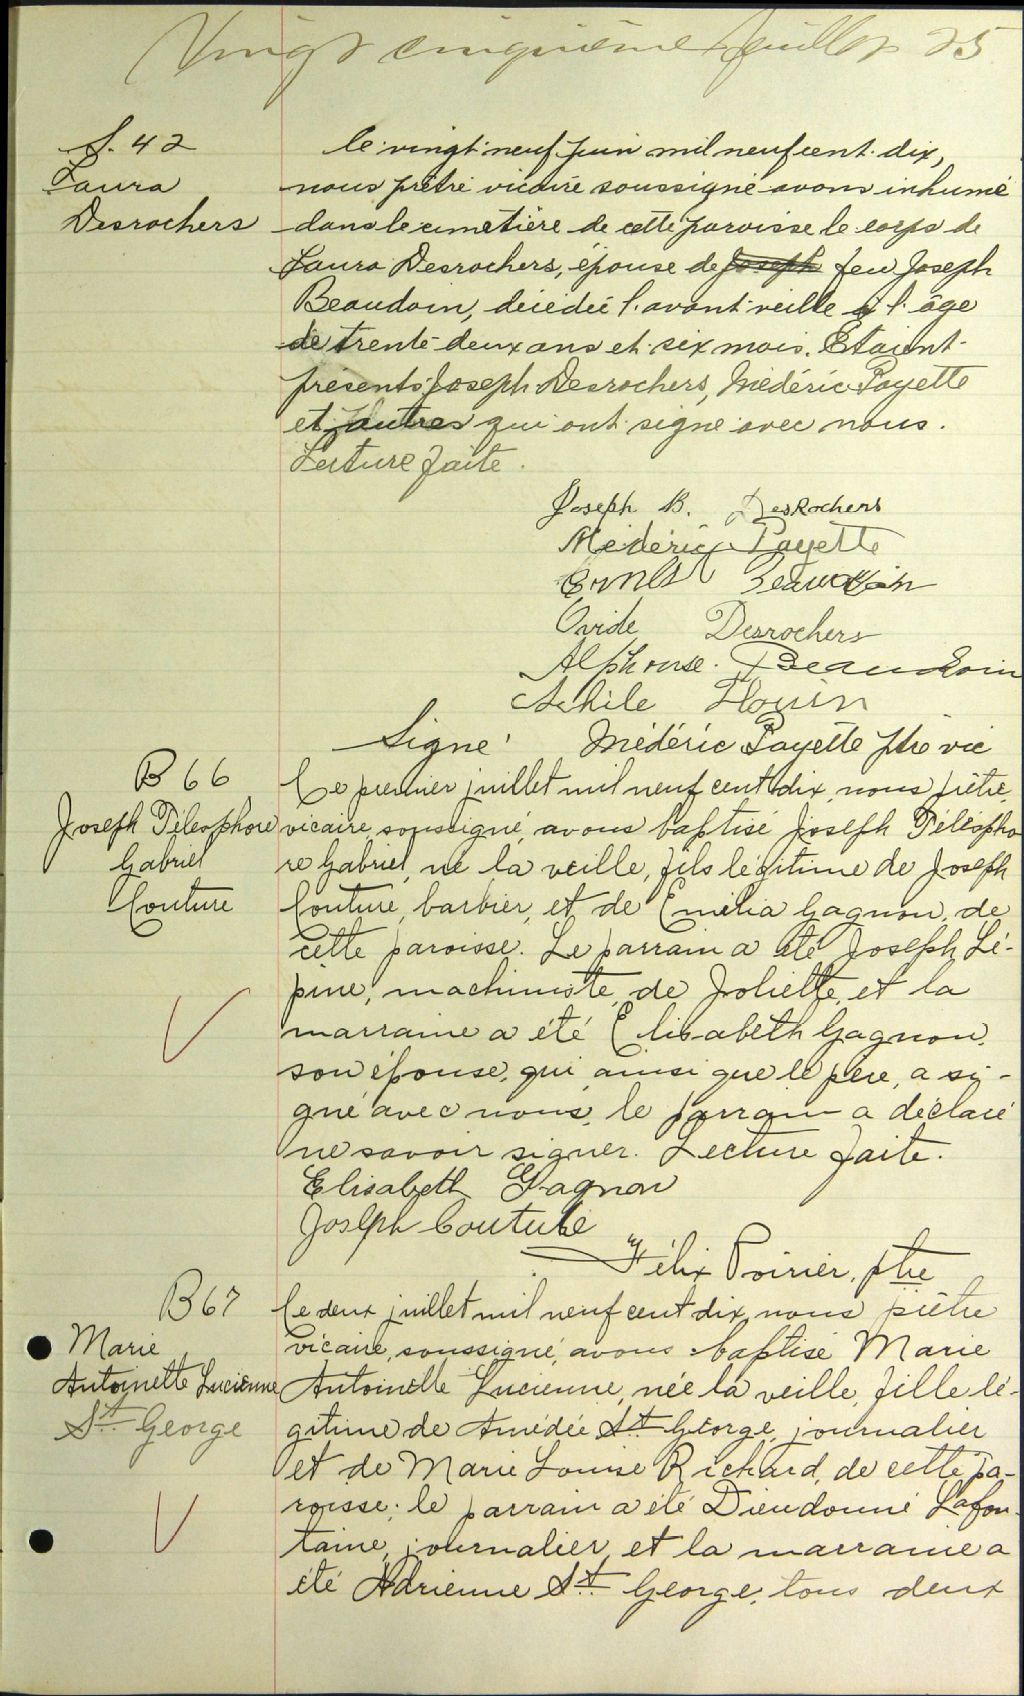 Vingt cinquième feuillet 25
S. 42
Laura
Desrochers
le vingt neuf juin mil neuf cent dix,
nous prêtre vicaire soussigné avons inhumé
dans le cimetière de cette paroisse le corps de
Laura Desrochers, épouse de Joseph feu Joseph
Beaudoin, décédée l'avant veille à l'âge
de trente-deux ans et six mois. Etaient
présents Joseph Desrochers, Médéric Payette
et d'autres qui ont signé avec nous.
Lecture faite.
Joseph B. DesRochers
Médéric Payette
Ernest Beaudoin
Ovide Desrochers
Alphonse. Beaudoin
Achile Flouin
Signé Médéric Payette ptre vic
B 66
Joseph Télesphore
Gabriel
Couture
Le premier juillet mil neuf cent dix, nous prêtre,
vicaire, soussigné, avons baptisé Joseph Télespho
re Gabriel, né la veille, fils légitime de Joseph
Couture, barbier, et de Emélia Gagnon, de
cette paroisse. Le parrain a été Joseph Lé-
pine, machiniste, de Joliette, et la
marraine a été Elisabeth Gagnon,
son épouse, qui, ainsi que le père, a si-
gné avec nous, le parrain a déclaré
ne savoir signer. Lecture faite.
Elisabeth Gagnon
Joseph Couture
Félix Poirier, ptre
B 67
Marie
Antoinette Lucienne
St George
le deux juillet mil neuf cent dix, nous prêtre
vicaire, soussigné, avons baptisé Marie
Antoinette Lucienne, née la veille, fille lé-
gitime de Amédée St George, journalier
et de Marie Louise Richard, de cette pa-
roisse; le parrain a été Dieudonné Lafon-
taine, journalier, et la marraine a
été Adrienne St George, tous deux